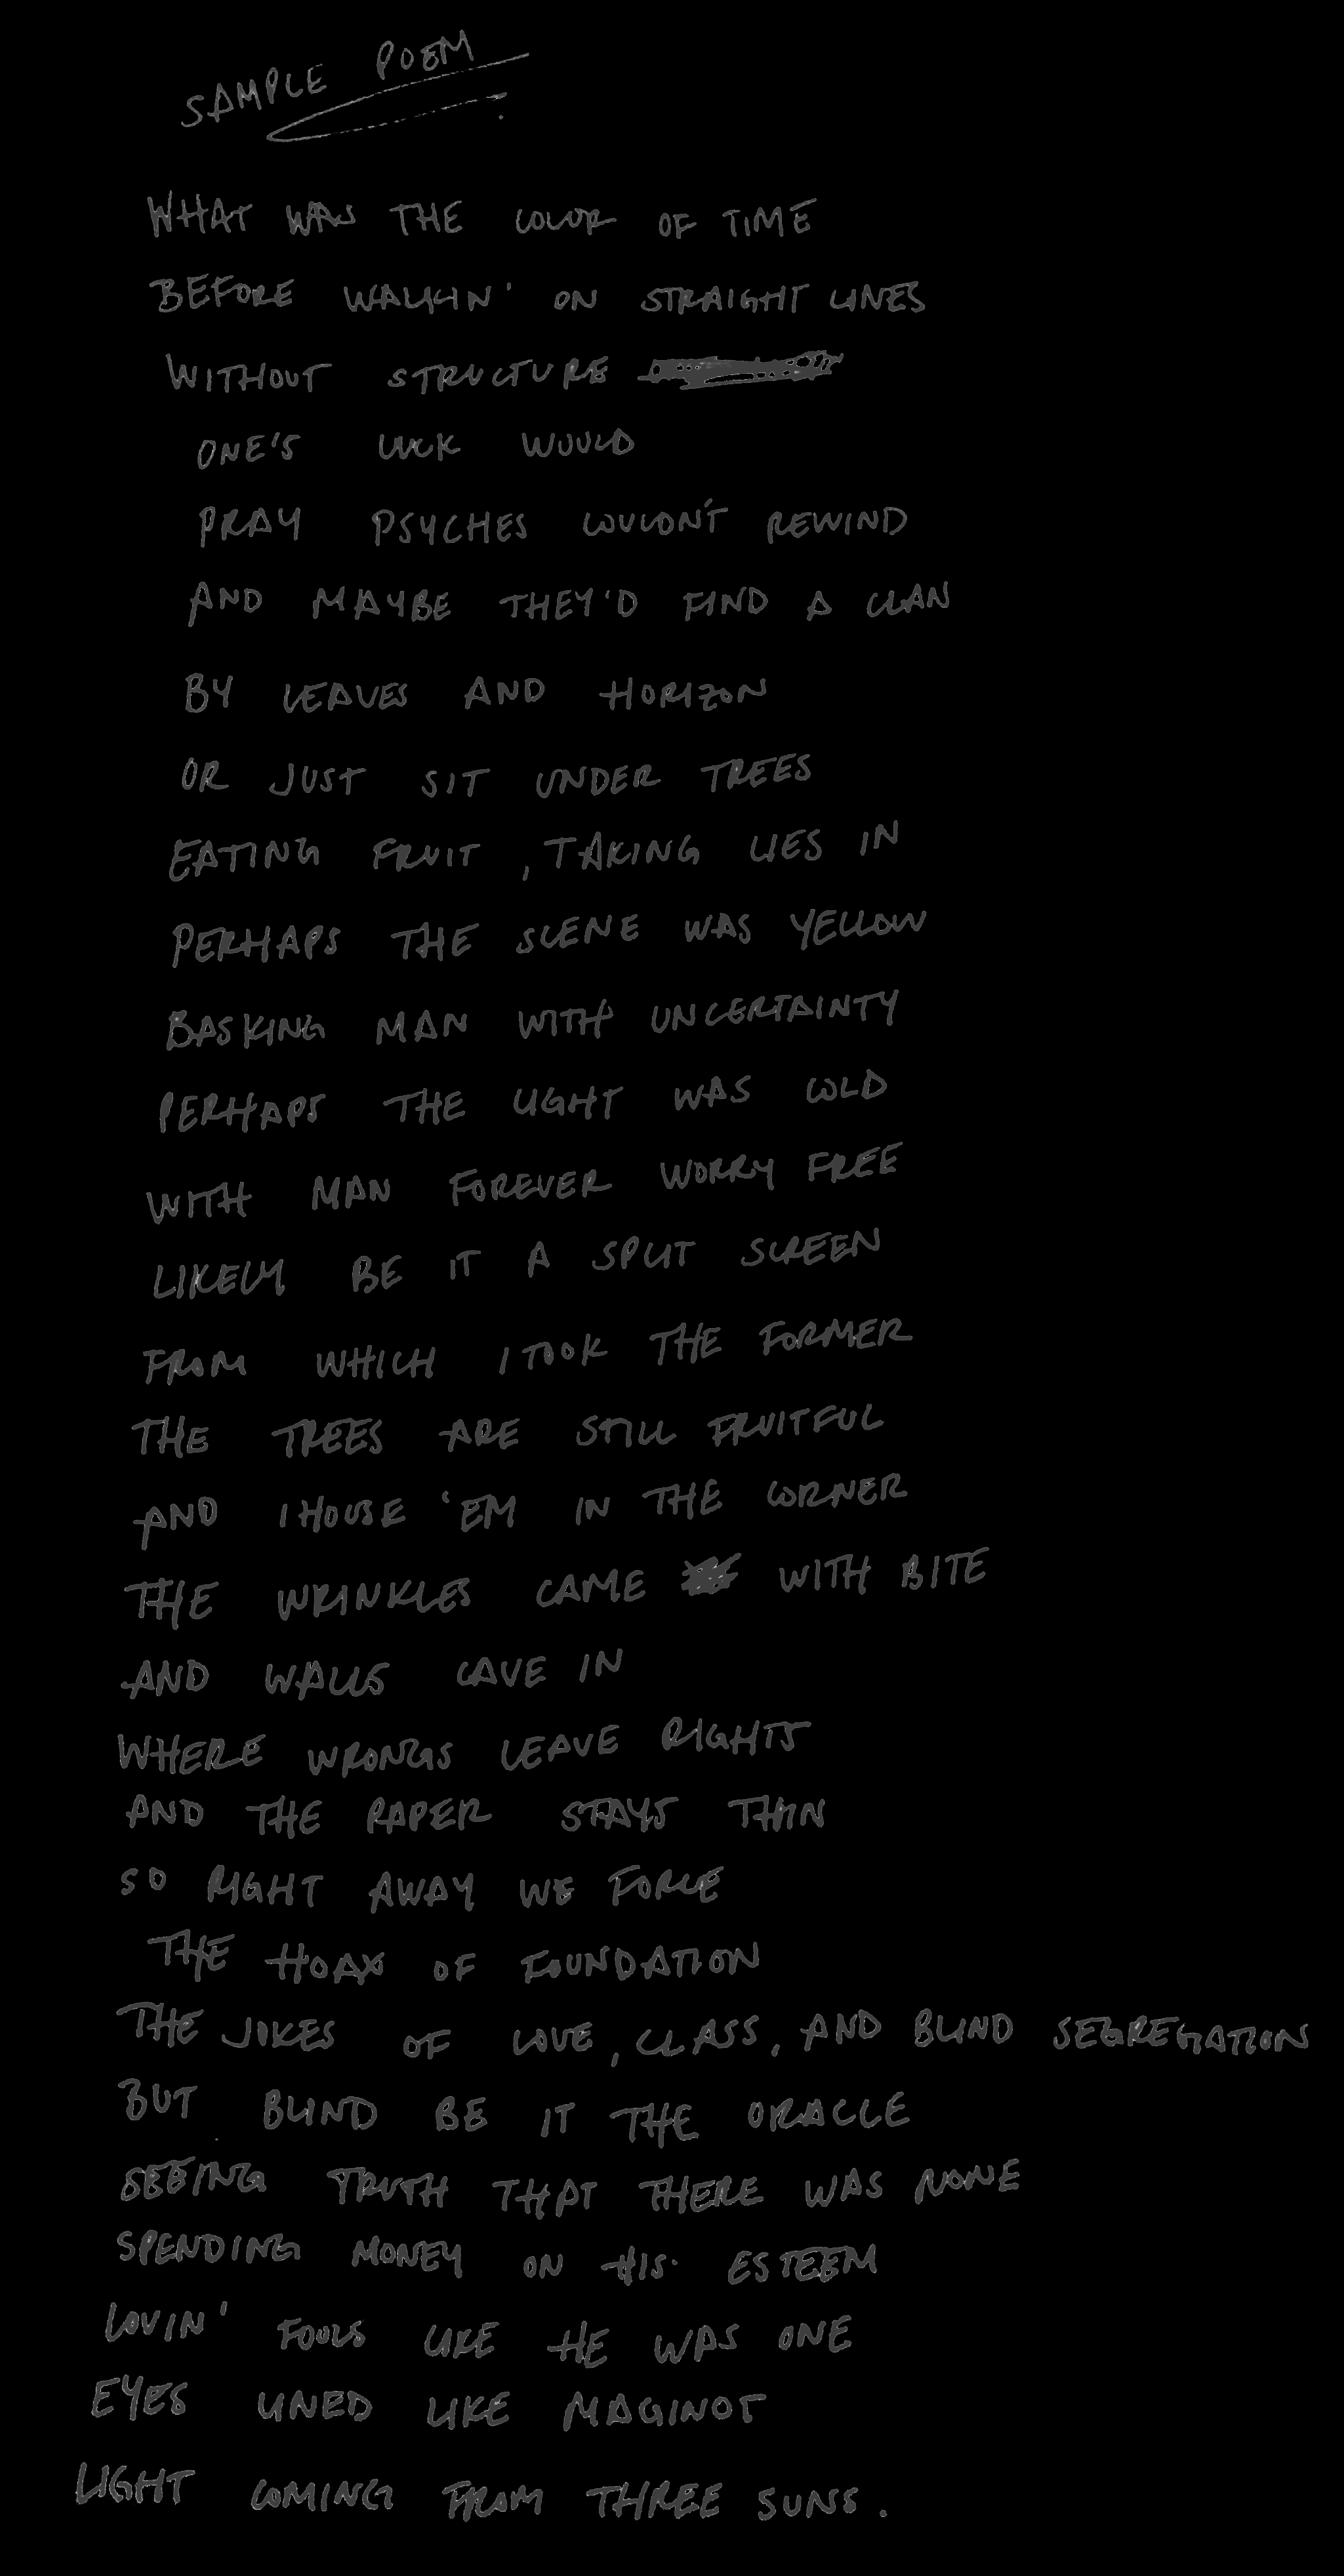 SAMPLE POEM
WHAT WAS THE COLOR OF TIME
BEFORE WALKIN' ON STRAIGHT LINES
WITHOUT STRUCTURE
ONE'S LUCK WOULD
PRAY PSYCHES WOULDN'T REWIND
AND MAYBE THEY'D FIND A CLAN
BY LEAVES AND HORIZON
OR JUST SIT UNDER TREES
EATING FRUIT, TAKING LIES IN
PERHAPS THE SCENE WAS YELLOW
BASKING MAN WITH UNCERTAINTY
PERHAPS THE LIGHT WAS COLD
WITH MAN FOREVER WORRY FREE
LIKELY BE IT A SPLIT SCREEN
FROM WHICH I TOOK THE FORMER
THE TREES ARE STILL FRUITFUL
AND I HOUSE 'EM IN THE CORNER
THE WRINKLES CAME WITH BITE
AND WALLS CAVE IN
WHERE WRONGS LEAVE RIGHTS
AND THE PAPER STAYS THIN
SO RIGHT AWAY WE FORCE
THE HOAX OF FOUNDATION
THE JOKES OF LOVE, CLASS, AND BLIND SEGREGATION
BUT BLIND BE IT THE ORACLE
SEEING TRUTH THAT THERE WAS NONE
SPENDING MONEY ON HIS ESTEEM
LOVIN' FOOLS LIKE HE WAS ONE
EYES LINED LIKE MAGINOT
LIGHT COMING FROM THREE SUNS.